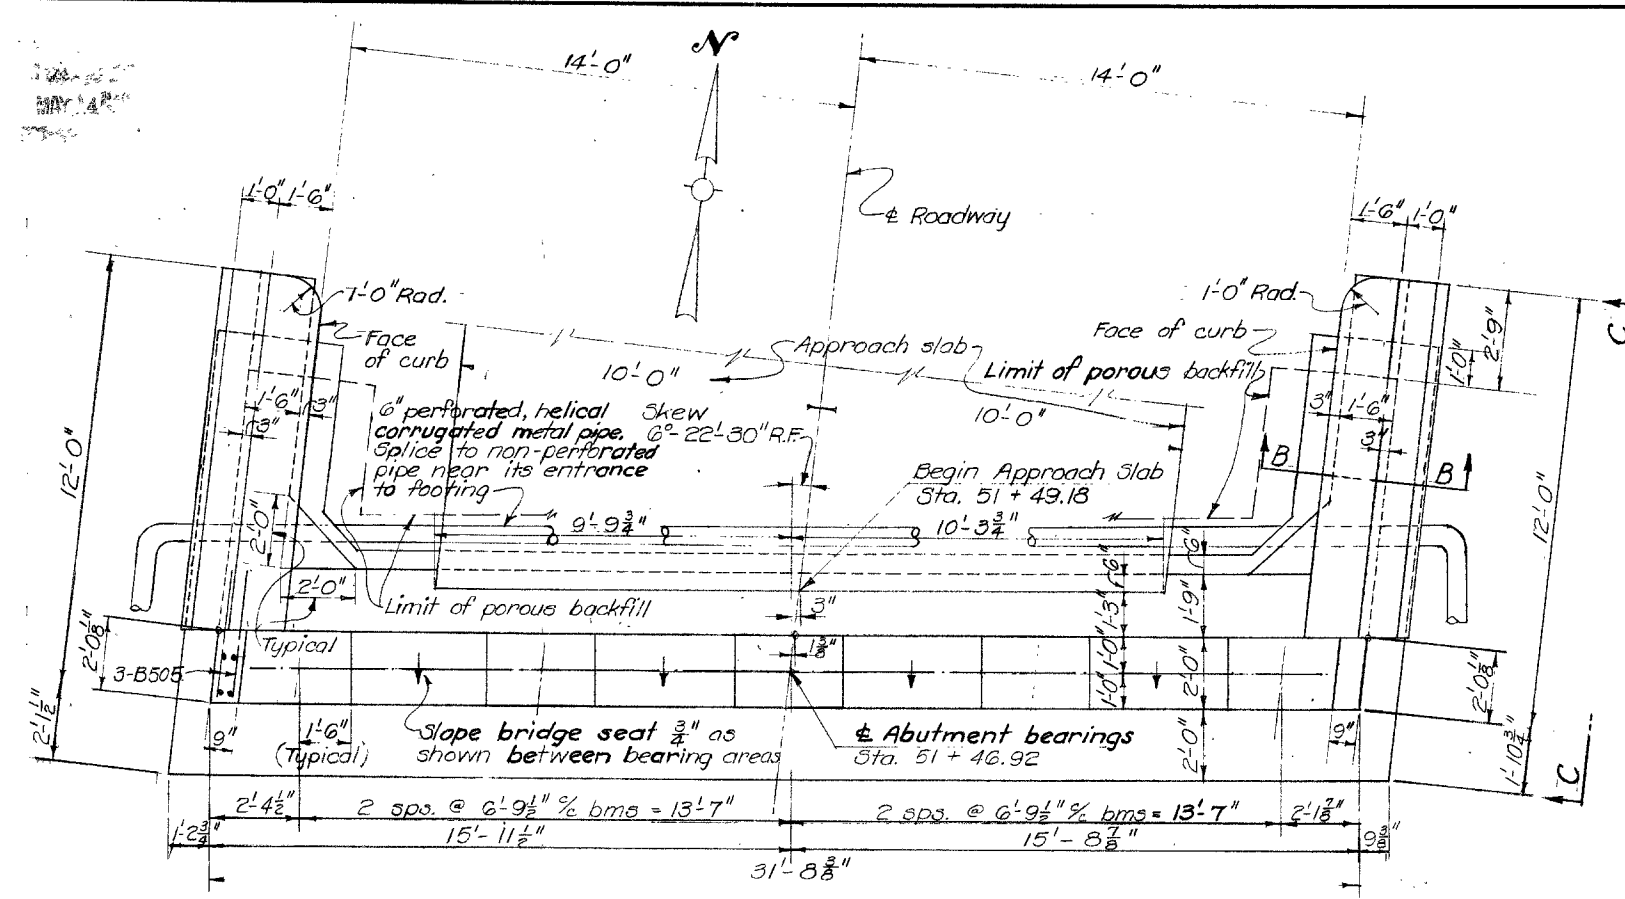 14'-0"
N
14'-0"
℄ Roadway
1'-0" 1'-6"
1'-6" 1'-0"
1'-0" Rad.
1'-0" Rad.
Face
of curb
Face of curb
Approach slab
Limit of porous backfill
10'-0"
10'-0"
1'-0"
2'-9"
C
12'-0"
1'-6" 3"
3"
3" 1'-6"
3"
6" perforated, helical
corrugated metal pipe.
Splice to non-perforated
pipe near its entrance
to footing
Skew
6°-22'-30" R.F.
Begin Approach Slab
Sta. 51 + 49.18
B B
12'-0"
9'-9 3/4"
10'-3 3/4"
2'-0"
2'-0"
Limit of porous backfill
3"
6"
6"
1'-3"
1'-9"
Typical
3-B505
2'-0 1/8"
2'-1 1/2"
1 3/8"
1'-0" 1'-0"
2'-0"
2'-0"
2'-0 1/8"
1'-10 3/4"
C
9"
1'-6"
(Typical)
Slope bridge seat 3/4" as
shown between bearing areas
℄ Abutment bearings
Sta. 51 + 46.92
9"
2'-4 1/2"
2 sps. @ 6'-9 1/2" c/c bms = 13'-7"
2 sps. @ 6'-9 1/2" c/c bms = 13'-7"
2'-1 7/8"
1'-2 3/4"
15'-11 1/2"
15'-8 7/8"
9 3/8"
31'-8 3/8"